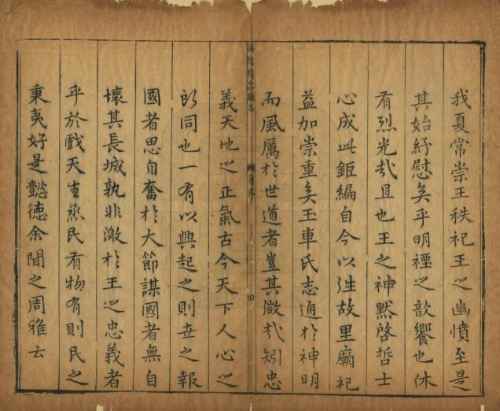 我夏常崇王秩祀王之幽憤至是
其始紓慰矣乎明禋之歆饗也休
有烈光哉且也王之神黙啓哲士
心成此鉅編自今以往故里廟祀
益加崇重矣玉車氏志通於神明
而風厲於世道者豈其微哉矧忠
義天地之正氣古今天下人心之
所同也一有以興起之則在之報
國者思自奮於大節謀國者無自
壞其長城孰非激於王之忠義者
乎於戲天生烝民有物有則民之
秉夷好是懿德余聞之周雅云